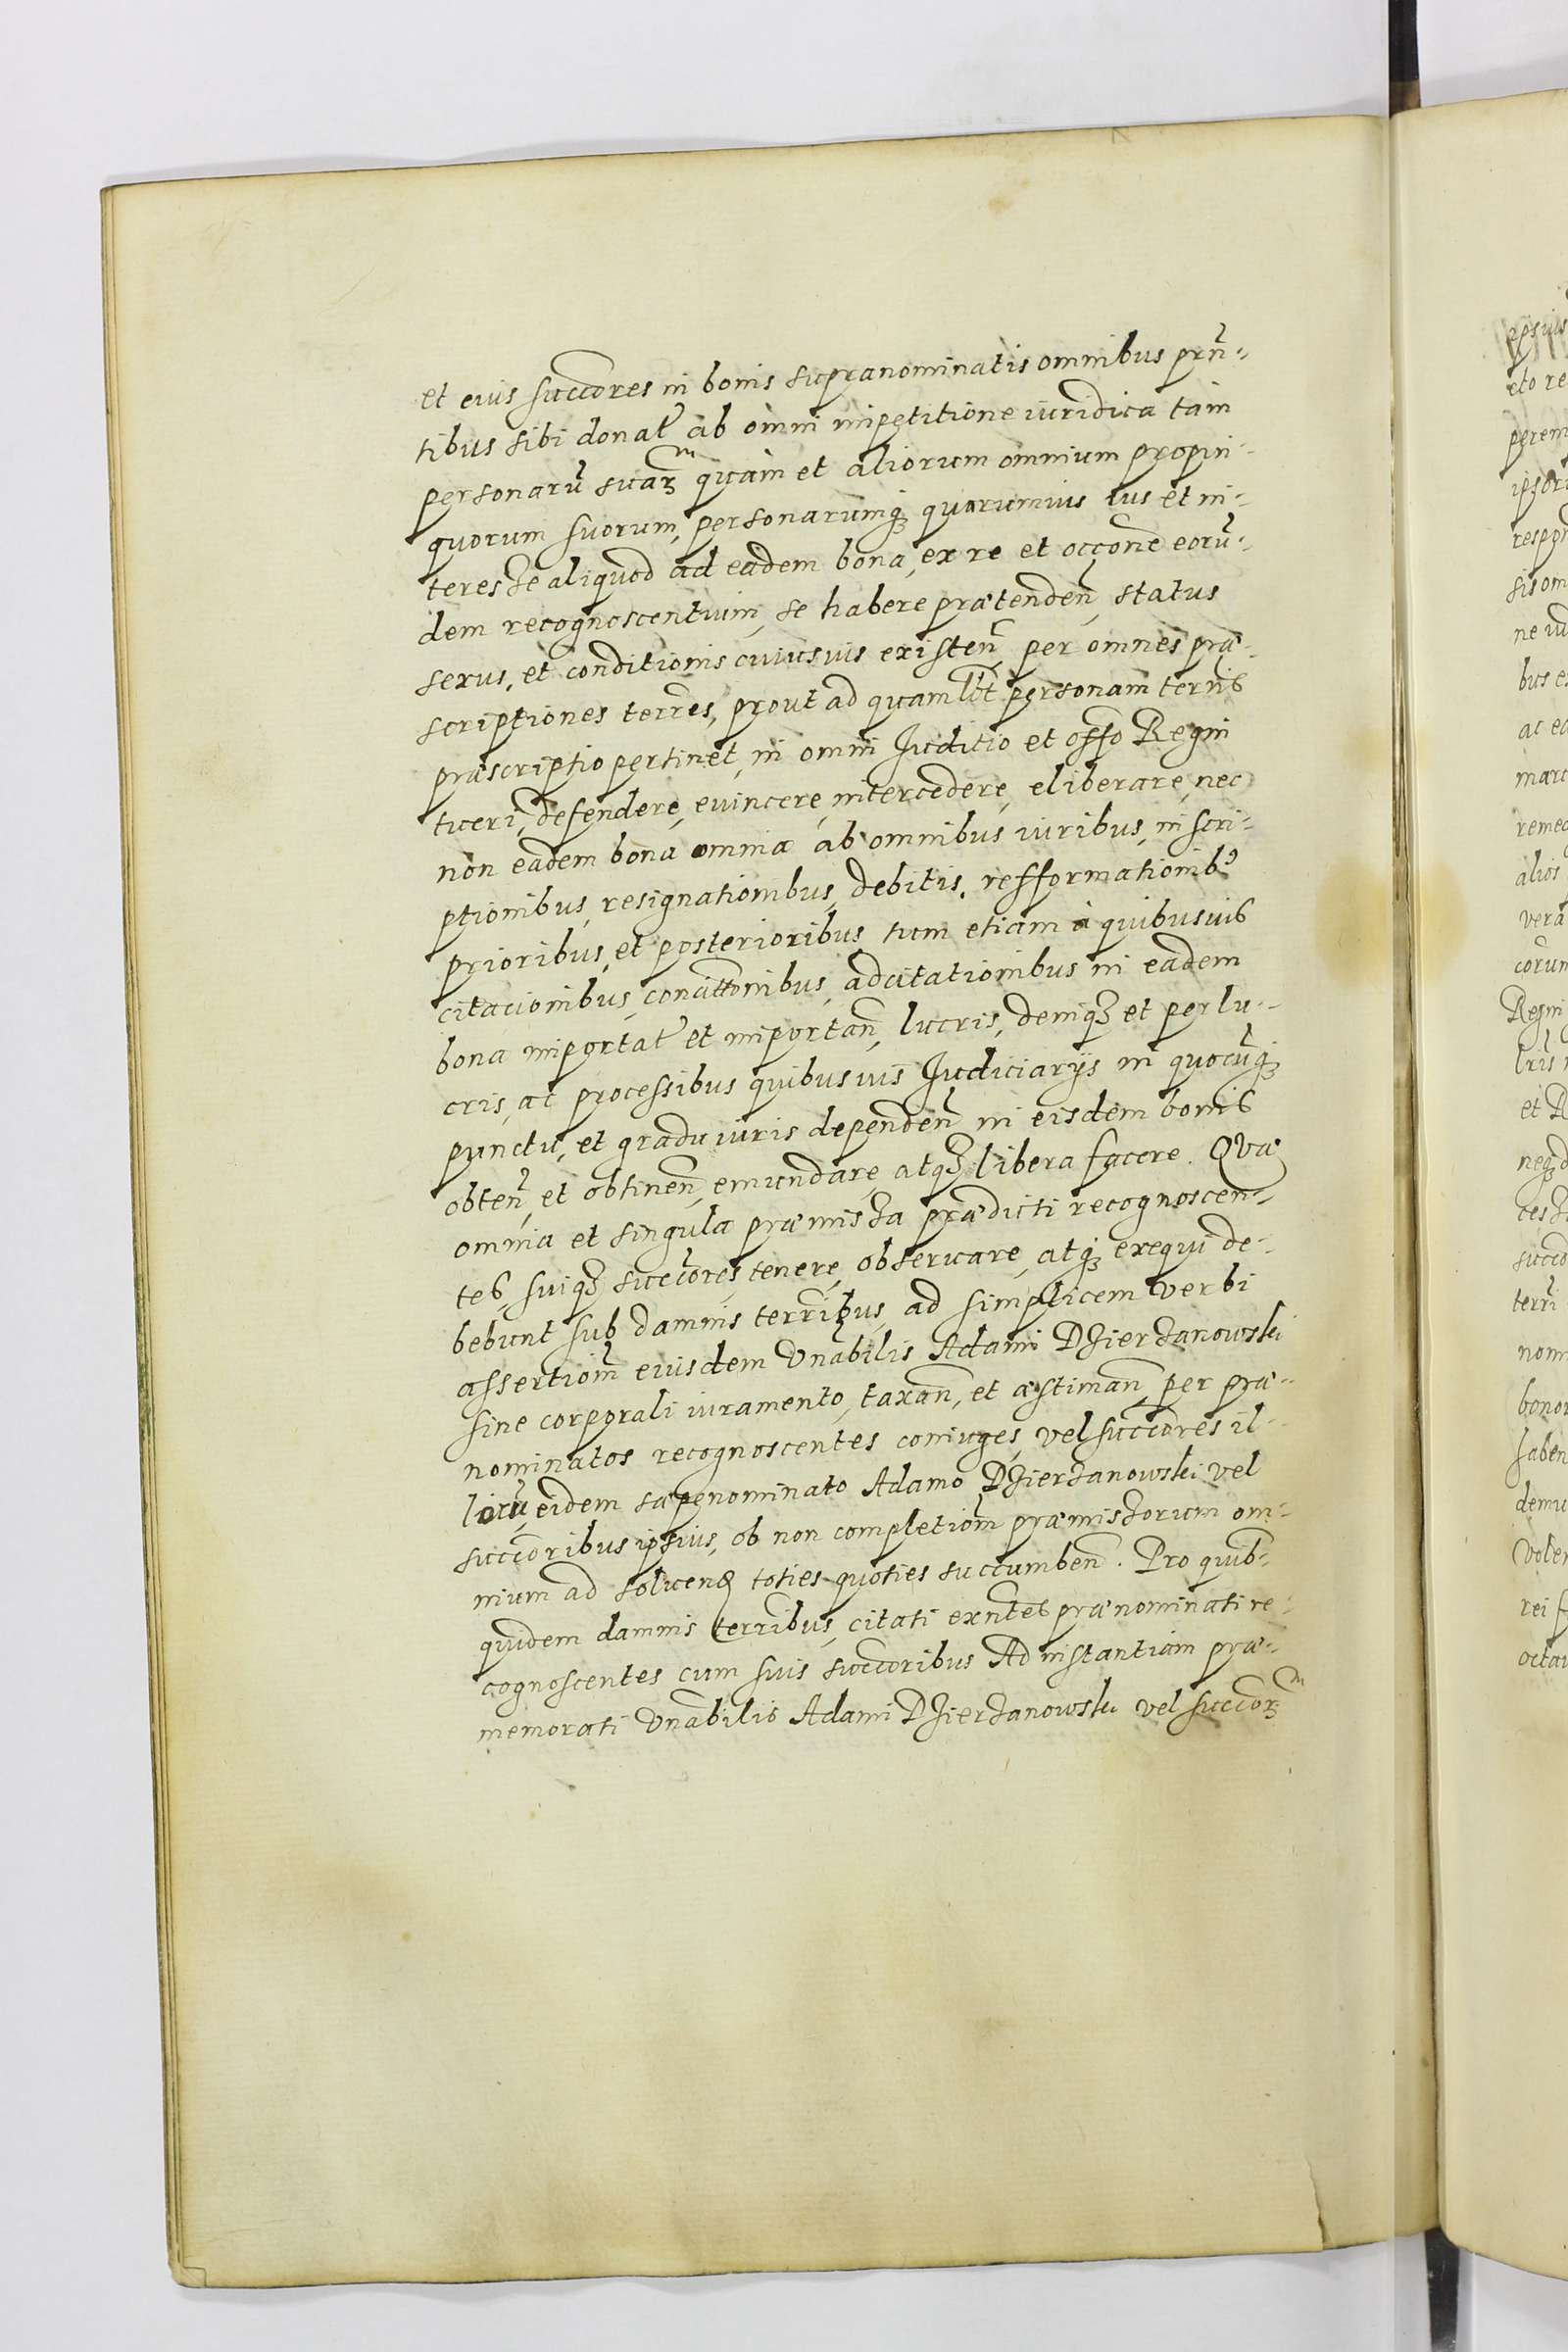 et eius succores in bonis supranominatis omnibus prn̄-
tibus sibi donat̕ ab omni impetitione iuridica tam
personarū suarꝝ quàm et aliorum omnium propin-
quorum suorum, personarumqꝫ quorumvis ius et in-
teresse aliquod ad eadem bona, ex re et occōne eorū-
dem recognoscentium, se habere prætenden̄, status
sexus, et conditionis cuiusuis existen̄, per omnes præ-
scriptiones terres̄, prout ad quamlbt personam terrn̄s
præscriptio pertinet, in omni Iuditio et offo Regni
tueri, defendere, euincere, intercedere, eliberare, nec
non eadem bona omnia ab omnibus iuribus, inscri-
ptionibus, resignationibus, debitis, refformationibꝰ
prioribus, et posterioribus, tum etiam à quibusuis
citacionibus, conditionibus, adcitationibus in eadem
bona importat̕ et importan̄, lucris, deniqꝫ et per lu-
cris, ac processibus quibusuis Iudiciarijs in quocūqꝫ
punctu, et gradu iuris dependen̄ in eisdem bonis
obten̄, et obtinen̄, emundare, atqꝫ libera facere. Quæ
omnia et singula præmissa prædicti recognoscen-
tes, suiqꝫ succores, tenere, obseruare, atqꝫ exequi de-
bebunt sub damnis terrībus, ad simplicem verbi
assertiom̄ eiusdem Vnābilis Adami Dzierzanowski
sine corporali iuramento, taxan̄, et æstiman̄, per præ-
nominatos recognoscentes coniuges, vel succores il-
lorū, eidem sæpenominato Adamo Dzierzanowski vel
succoribus ipsius, ob non completiom̄ præmissorum om-
nium ad soluend toties quoties succumben̄. Pro quib-
quidem damnis terrībus, citati exn̄tes prænominati re-
cognoscentes cum suis succoribus Ad instantiam præ-
memorati Vnābilis Adami Dzierzanowski vel succorꝝ